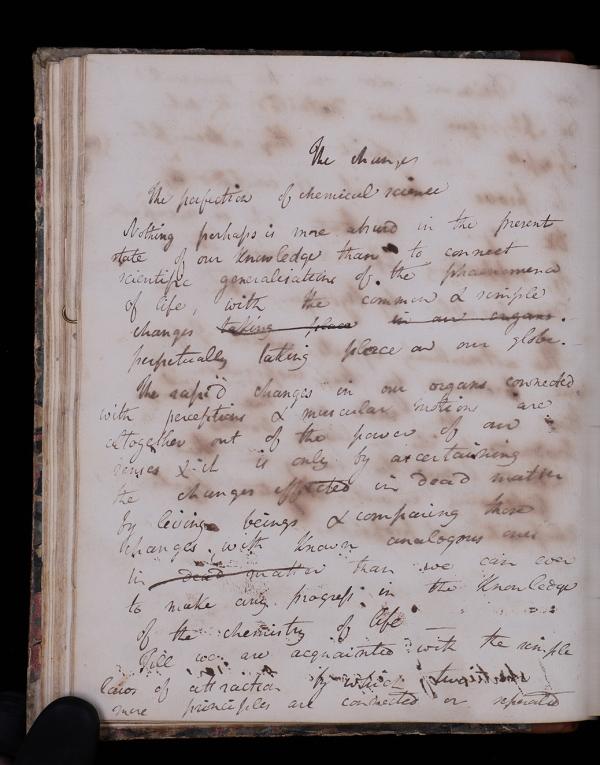 The changes
The perfection of chemical science
Nothing perhaps is more absurd in the present
state of our knowledge than to connect
scientific generalisations of the phaenomena
of life, with the common & simple
changes taking place in our organs.
perpetually taking place on our globe.
The rapid changes in our organs connected
with perceptions & muscular motions are
altogether out of the power of our
senses & it is only by ascertaining
the changes effected in dead matter
by living beings & comparing these
changes with known analogous ones
in dead matter than we can ever
to make any progress in the knowledge
of the chemistry of life
Till we are acquainted with the simple
laws of attraction by which two
more principles are connected or separated